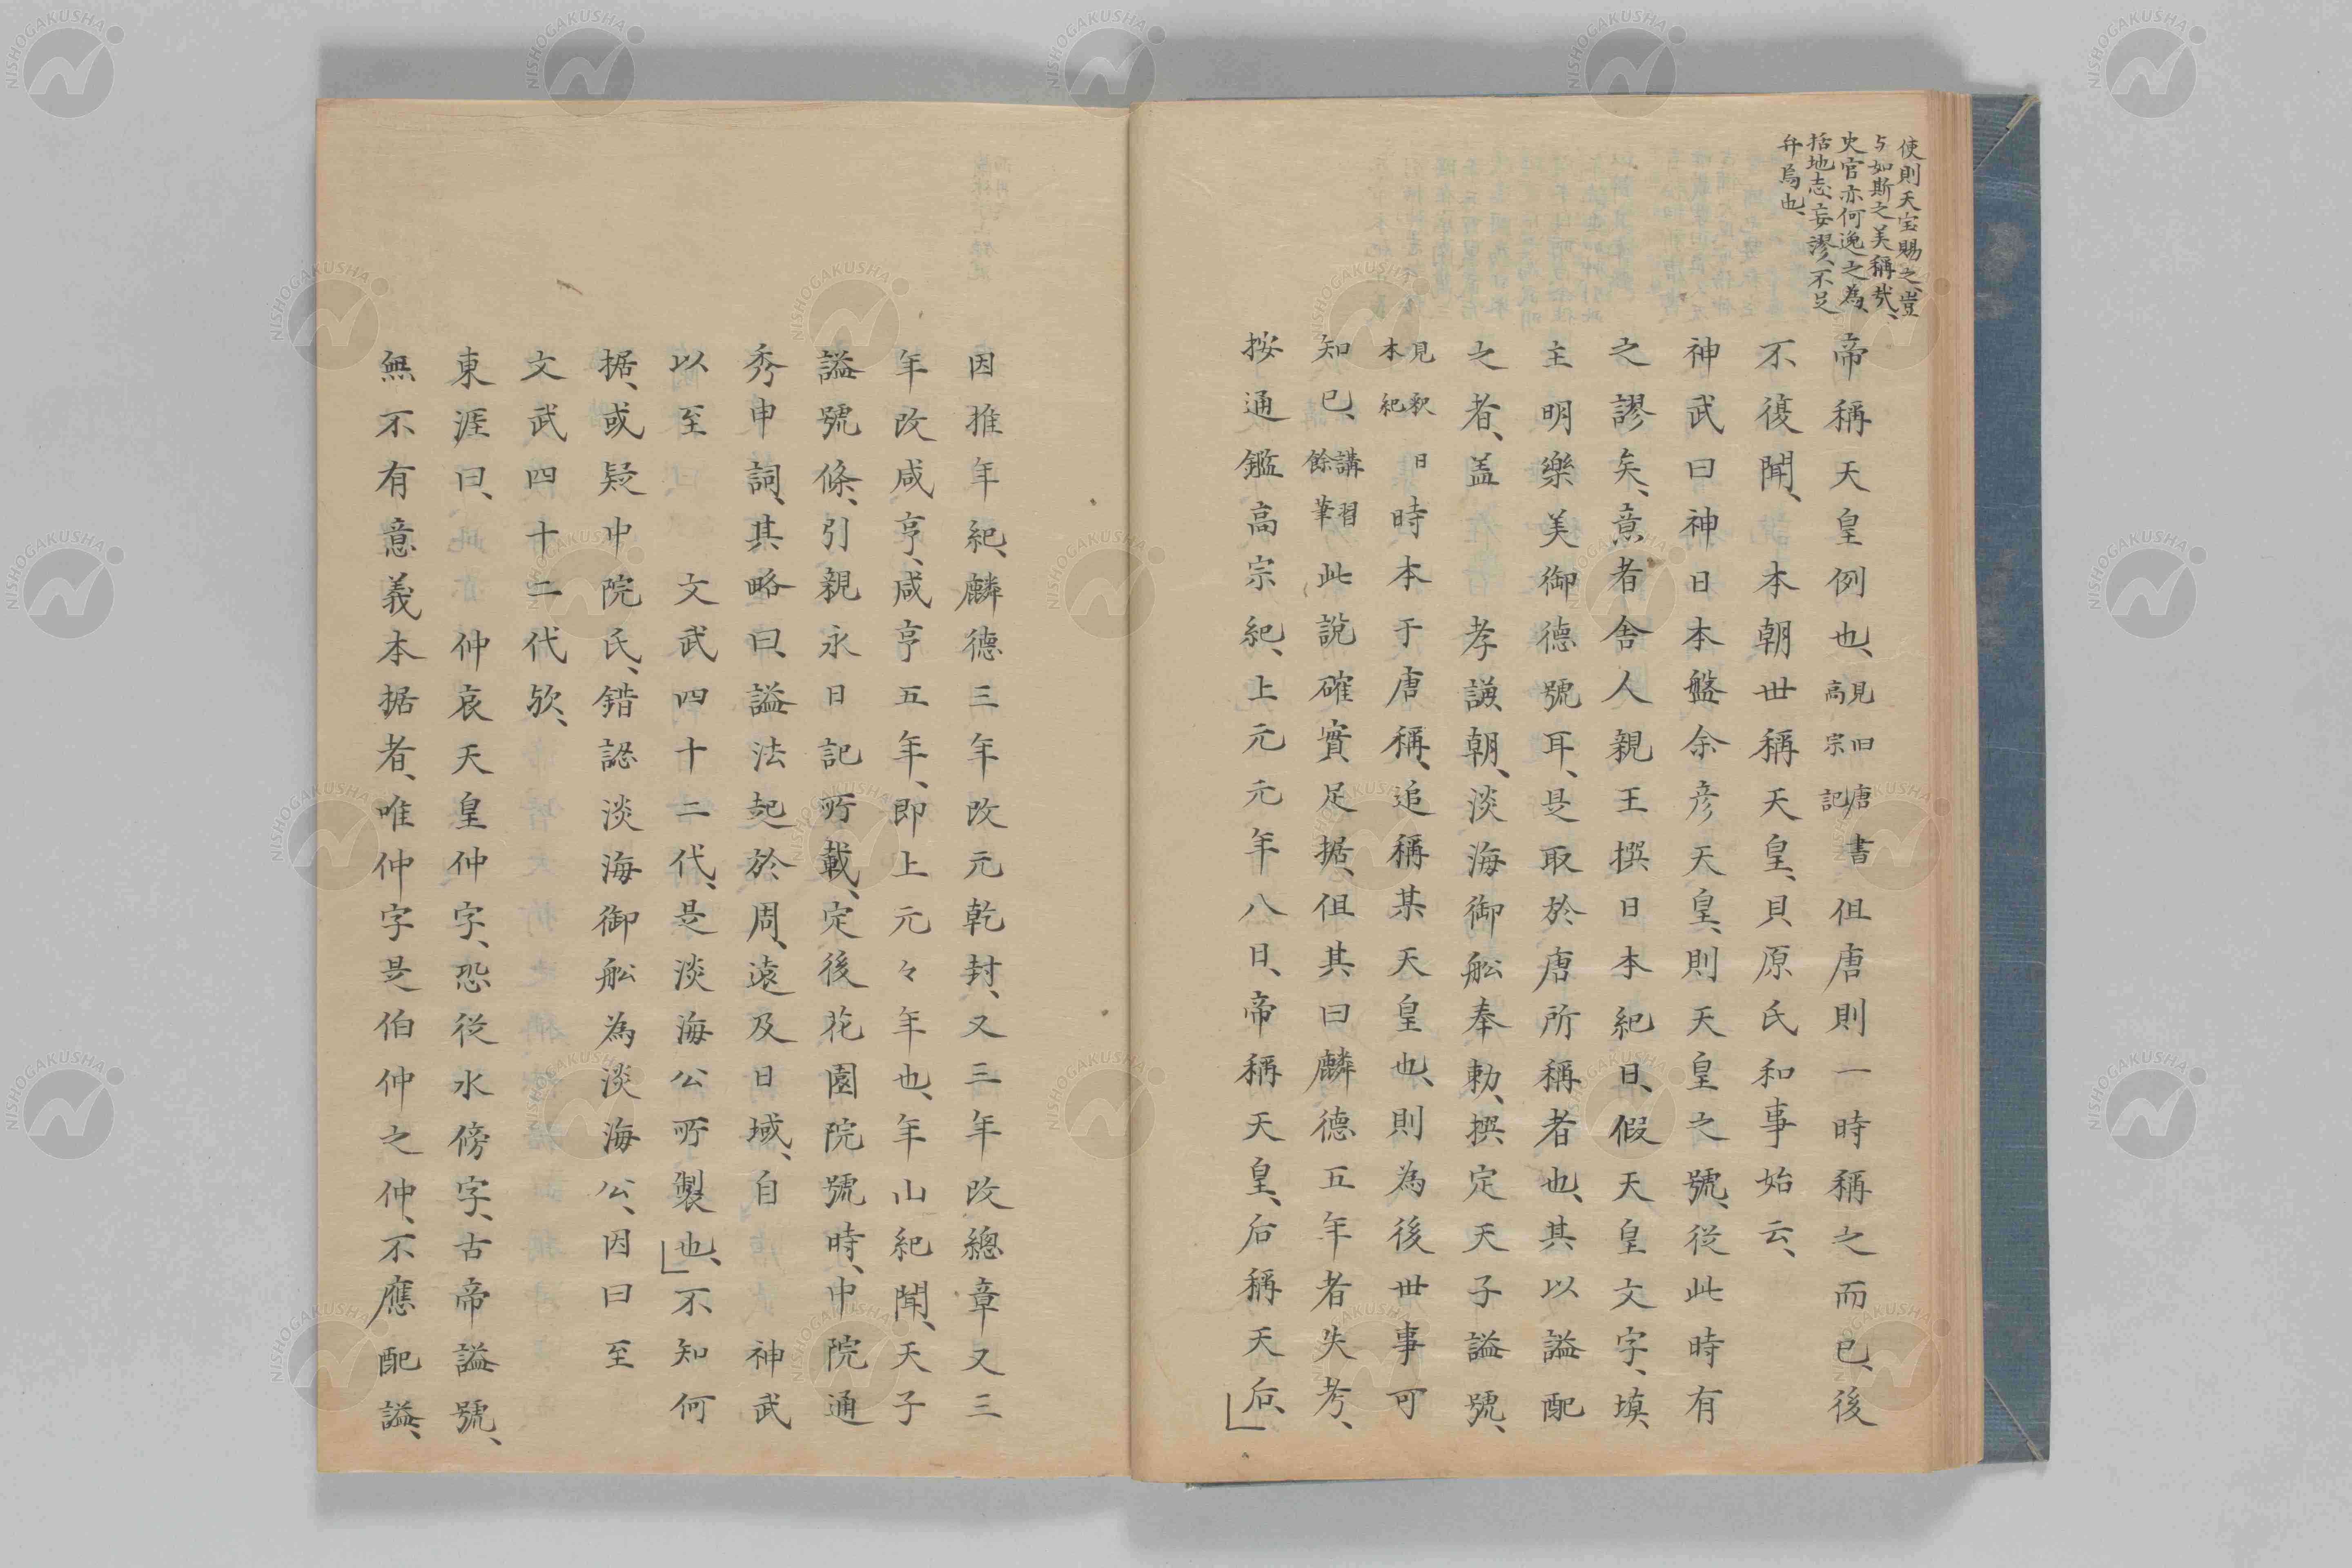 使則天宝賜之、豈
与如斯之美稱哉、
史官亦何逸之為、
括地志、妄謬、不足
弁焉也、
帝稱天皇例也、見旧唐書高宗記但唐則一時稱之而已、後
不復聞、本朝世稱天皇、貝原氏和事始云、
神武曰神日本盤余彦天皇、則天皇之號、従此時有
之謬矣、意者舎人親王撰日本紀日、假天皇文字、填
主明樂美御德號耳、是取於唐所稱者也、其以謚配
之者、盖　孝謙朝、淡海御舩奉勅、撰定天子謚號、
見釈日本紀時本于唐稱、追稱某天皇也、則為後世事可
知已、講習餘筆此說確實足据、但其曰麟德五年者失考、
按通鑑高宗紀、上元元年八日、帝稱天皇、后稱天后、
因推年紀、麟德三年改元乾封、又三年改總章又三
年改咸亨、咸亨五年、即上元々年也、年山紀聞、天子
謚號條、引親永日記所載、定後花園院號時、中院通
秀申詞、其略曰、謚法起於周、遠及日域、自　神武
以至　文武四十二代、是淡海公所製也、不知何
据、或疑中院氏、錯認淡海御舩為淡海公、因曰至
文武四十二代欤、
東涯曰、　仲哀天皇仲字、恐従水傍字、古帝謚號、
無不有意義本据者、唯仲字是伯仲之仲、不應配謚、